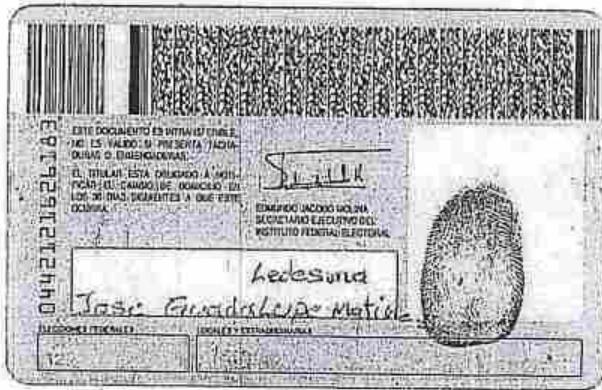 ESTE DOCUMENTO ES INTRANSFERIBLE,
NO ES VALIDO SI PRESENTA TACHA-
DURAS O ENMENDADURAS.
EL TITULAR ESTA OBLIGADO A NOTI-
FICAR EL CAMBIO DE DOMICILIO EN
LOS 30 DIAS SIGUIENTES A QUE ESTE
OCURRA.
EDMUNDO JACOBO MOLINA
SECRETARIO EJECUTIVO DEL
INSTITUTO FEDERAL ELECTORAL
0442121626183
Ledesma
Jose Guadalupe
ELECCIONES FEDERALES
LOCALES Y EXTRAORDINARIAS
12